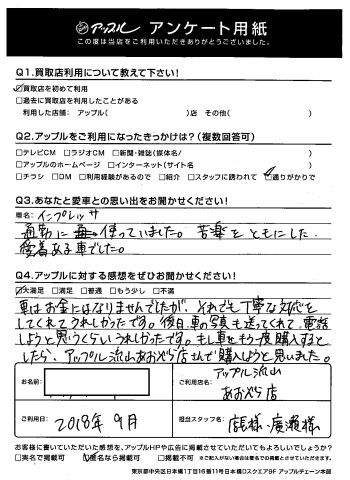 アップル アンケート用紙
この度は当店をご利用いただきありがとうございました。
Q1.買取店利用について教えて下さい!
☑買取店を初めて利用
□過去に買取店を利用したことがある
利用した店舗: アップル( )店 その他( )
Q2.アップルをご利用になったきっかけは?(複数回答可)
□テレビCM □ラジオCM □新聞・雑誌(媒体名/ )
□アップルのホームページ □インターネット(サイト名 )
□チラシ □DM □利用経験があるので □紹介 □スタッフに誘われて ☑通りがかりで
Q3.あなたと愛車との思い出をお聞かせください!
車名: インプレッサ
通勤に 使っていました。苦楽をともにした
愛着ある車でした。
Q4.アップルに対する感想をぜひお聞かせください!
☑大満足 □満足 □普通 □もう少し □不満
車はお金にはなりませんでしたが、それでも丁寧な対応を
してくれてうれしかったです。後日車の写真も送ってくれて、電話
しようと思うくらいうれしかったです。もし車をもう一度購入すると
したら、アップル流山あおぞら店さんで購入しようと思いました。
お名前:
ご利用店名: アップル流山
あおぞら店
ご利用日: 2018年9月
担当スタッフ名: 店長様・廣瀬様
お客様に書いていただいた感想を、アップルHPや広告に掲載させていただいてもよろしいでしょうか?
□実名で掲載可 ☑匿名なら掲載可 □掲載不可 ※ご記入がない場合は匿名での掲載とさせていただきます。
東京都中央区日本橋1丁目16番11号日本橋Dスクエア9F アップルチェーン本部